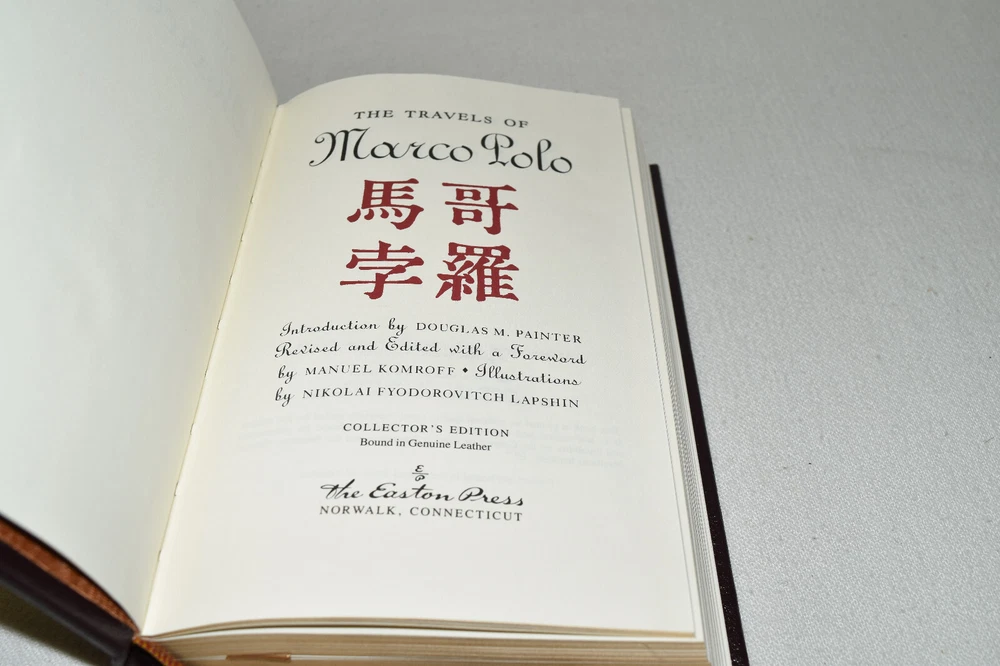 THE TRAVELS OF
Marco Polo
馬哥
孛羅
Introduction by DOUGLAS M. PAINTER
Revised and Edited with a Foreword
by MANUEL KOMROFF • Illustrations
by NIKOLAI FYODOROVITCH LAPSHIN
COLLECTOR'S EDITION
Bound in Genuine Leather
EP
The Easton Press
NORWALK, CONNECTICUT